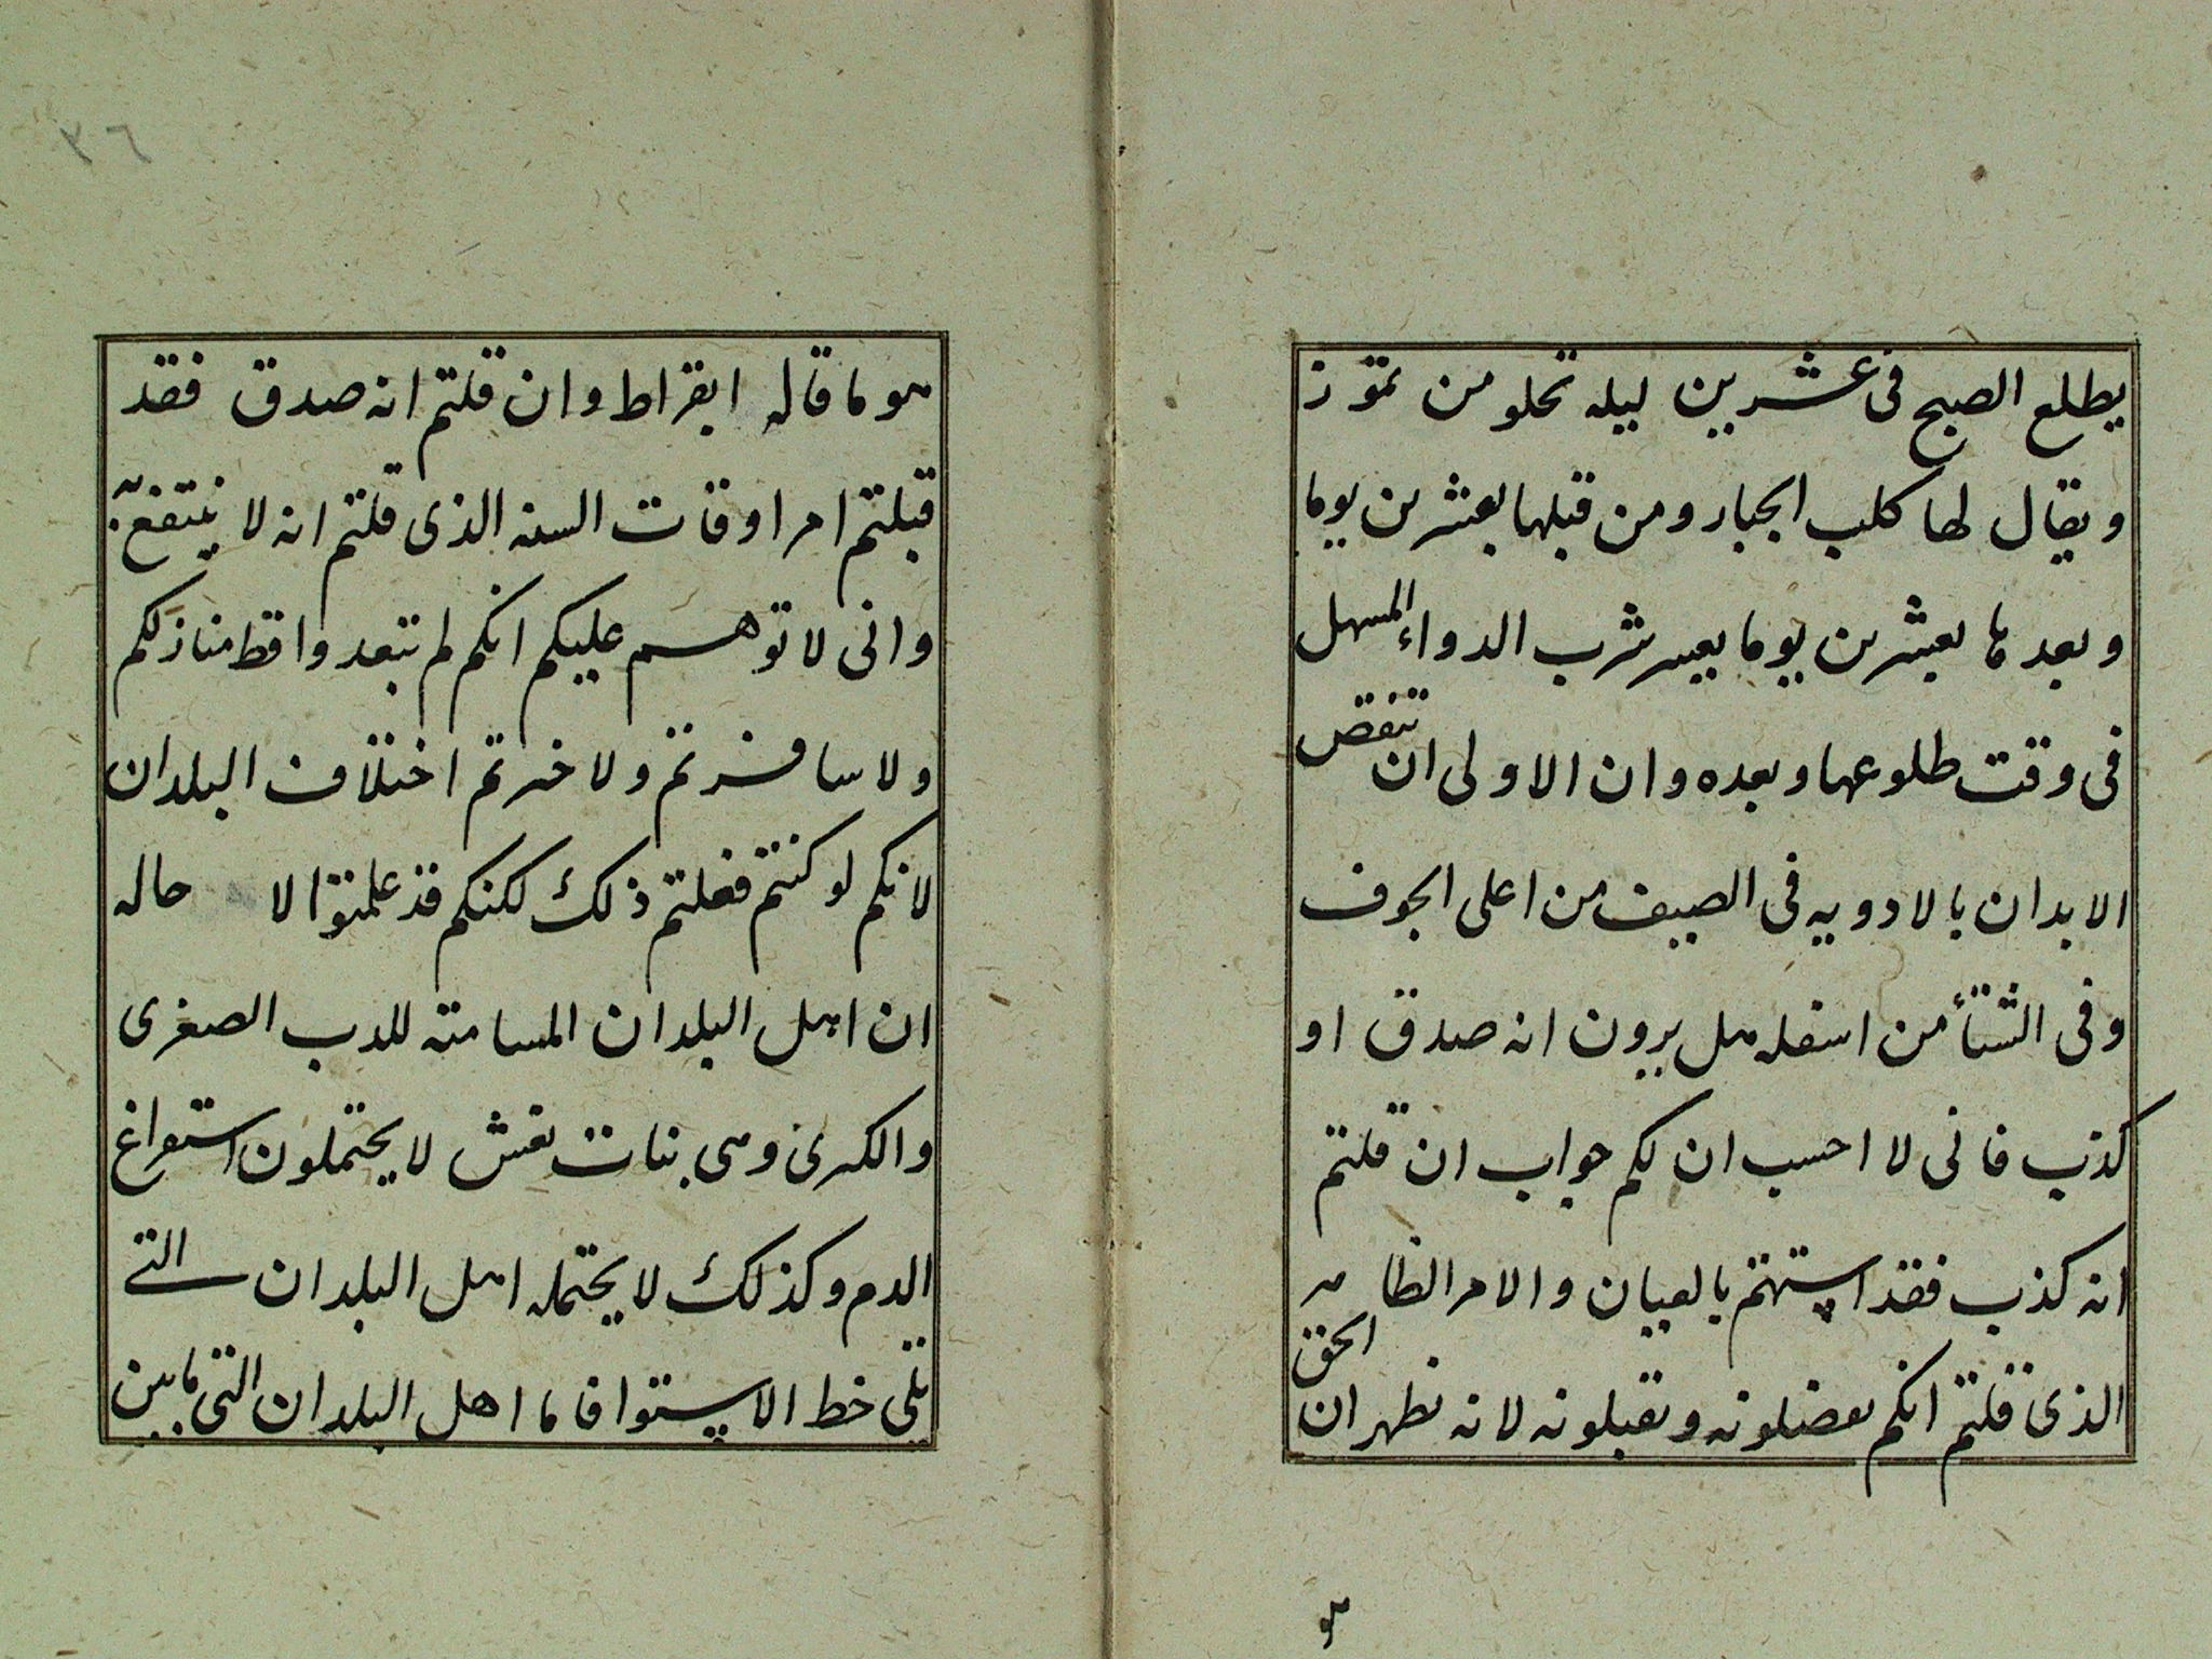 يطلع الصبح فى عشرين ليله تخلو من تموز
ويقال لها كلب الجبار ومن قبلها بعشرين يوما
وبعدها بعشرين يوما يعسر شرب الدواء المسهل
فى وقت طلوعها وبعده وان الاولى ان تنقص
الابدان بالادويه فى الصيف من اعلى الجوف
وفى الشتأ من اسفله هل يرون انه صدق او
كذب فانى لا احسب ان لكم جواب ان قلتم
انه كذب فقد استهنتم بالعيان والامر الظاهر
الذى قلتم انكم تفضلونه وتقبلونه لانه يظهر ان الحق
هو
٣٦
هو ما قاله ابقراط وان قلتم انه صدق فقد
قبلتم امر اوقات السنه الذى قلتم انه لا ينتفع به
وانى لا توهم عليكم انكم لم تبعدوا قط منازلكم
ولا سافرتم ولا خبرتم اختلاف البلدان
لانكم لو كنتم فعلتم ذلك لكنكم قد علمتوا لا حاله
ان اهل البلدان المسامته للدب الصغرى
والكبرى وهى بنات نعش لا يحتملون استفراغ
الدم وكذلك لا يحتمله اهل البلدان التى
تلى خط الاستوا فاما اهل البلدان التى ما بين